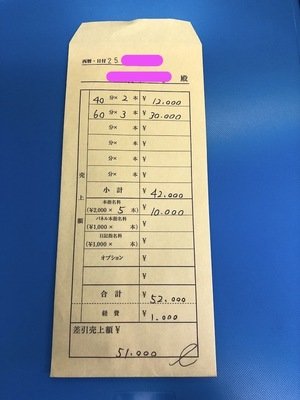 西暦・日付 25.
殿
40分× 2 本 ¥ 12.000
60分× 3 本 ¥ 30.000
分× 本 ¥
分× 本 ¥
分× 本 ¥
分× 本 ¥
売上額
小計 ¥ 42.000
本指名料
(¥2,000× 5 本) ¥ 10.000
パネル本指名料
(¥1,000× 本) ¥
日記指名料
(¥1,000× 本) ¥
オプション ¥
¥
合計 ¥ 52.000
経費 ¥ 1.000
差引売上額 ¥
51.000